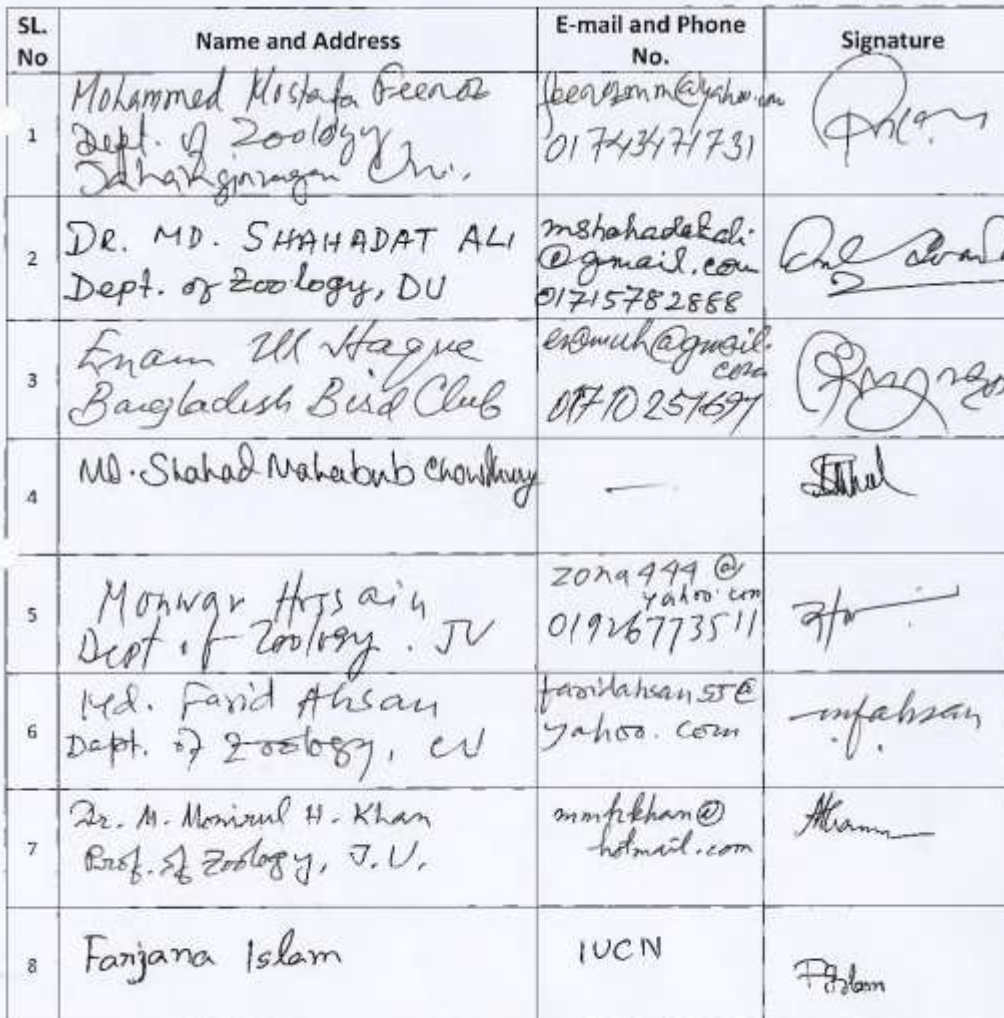 SL. No
Name and Address
E-mail and Phone No.
Signature
1
Mohammed Mostafa Feeroz
Dept. of Zoology
Jahangirnagar Uni.
feerozmm@yahoo.com
01743471731
2
DR. MD. SHAHADAT ALI
Dept. of Zoology, DU
mshahadatali
@gmail.com
01715782888
3
Enam Ul Haque
Bangladesh Bird Club
enamuh@gmail.
com
4
MD. Shahad Mahabub Chowdhury
—
5
Monwar Hossain
Dept of Zoology. JU
zona444@
yahoo.com
01926773511
6
Md. Farid Ahsan
Dept. of Zoology, CU
faridahsan55@
yahoo.com
mfahsan
7
Dr. M. Monirul H. Khan
Prof. of Zoology, J.U.
mmhkhan@
hotmail.com
8
Farjana Islam
IUCN